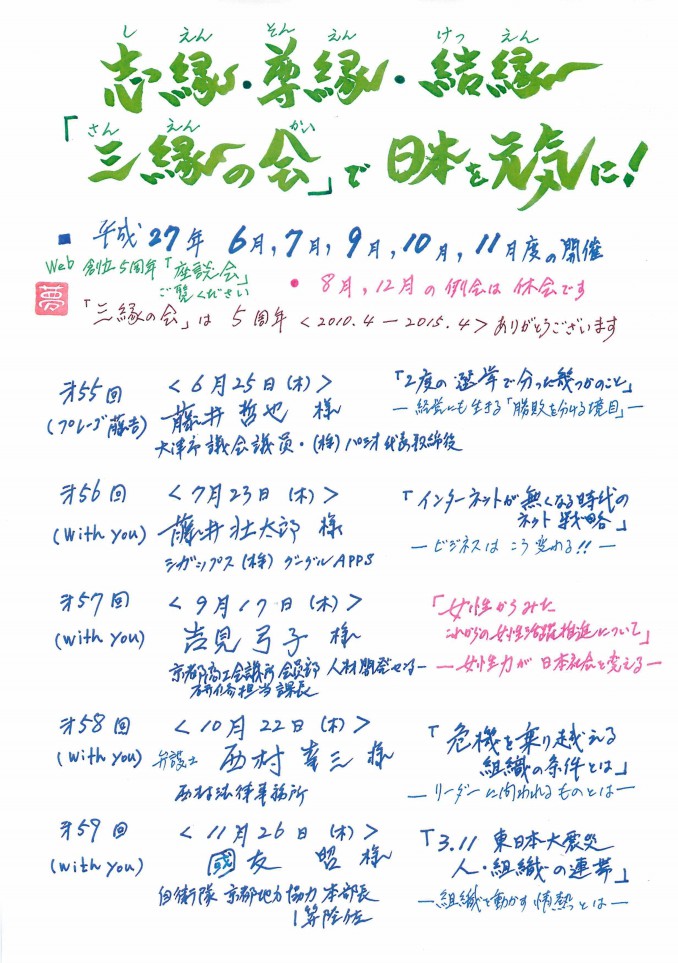 し えん そん えん けつ えん
志縁・尊縁・結縁
さん えん かい
「三縁の会」で 日本を元気に!
■ 平成27年 6月,7月,9月,10月,11月度の開催
Web 創立5周年「座談会」
ご覧ください
● 8月,12月の例会は 休会です
夢
「三縁の会」は 5周年<2010.4ー2015.4>ありがとうございます
第55回 <6月25日(木)> 「2度の選挙で分った幾つかのこと」
(プレーゴ藤吉) 藤井 哲也 様 ー経営にも生きる「勝敗を分ける境目」ー
大津市議会議員・(株)パシオ代表取締役
第56回 <7月23日(木)> 「インターネットが無くなる時代の
ネット戦略」
(with you) 藤井壮太郎 様 ービジネスは こう変わる!!ー
シガシプス(株) グーグルAPPS
第57回 <9月17日(木)> 「女性からみた
これからの女性活躍推進について」
(with you) 吉見弓子 様 ー女性力が日本社会を変えるー
京都商工会議所会員部 人材開発センター
研修担当課長
第58回 <10月22日(木)> 「危機を乗り越える
組織の条件とは」
(with you) 弁護士 西村幸三 様 ーリーダーに問われるものとはー
西村法律事務所
第59回 <11月26日(木)> 「3.11 東日本大震災
人・組織の連帯」
(with you) 國友 昭 様 ー組織を動かす情熱とはー
自衛隊 京都地方協力本部長
1等陸佐